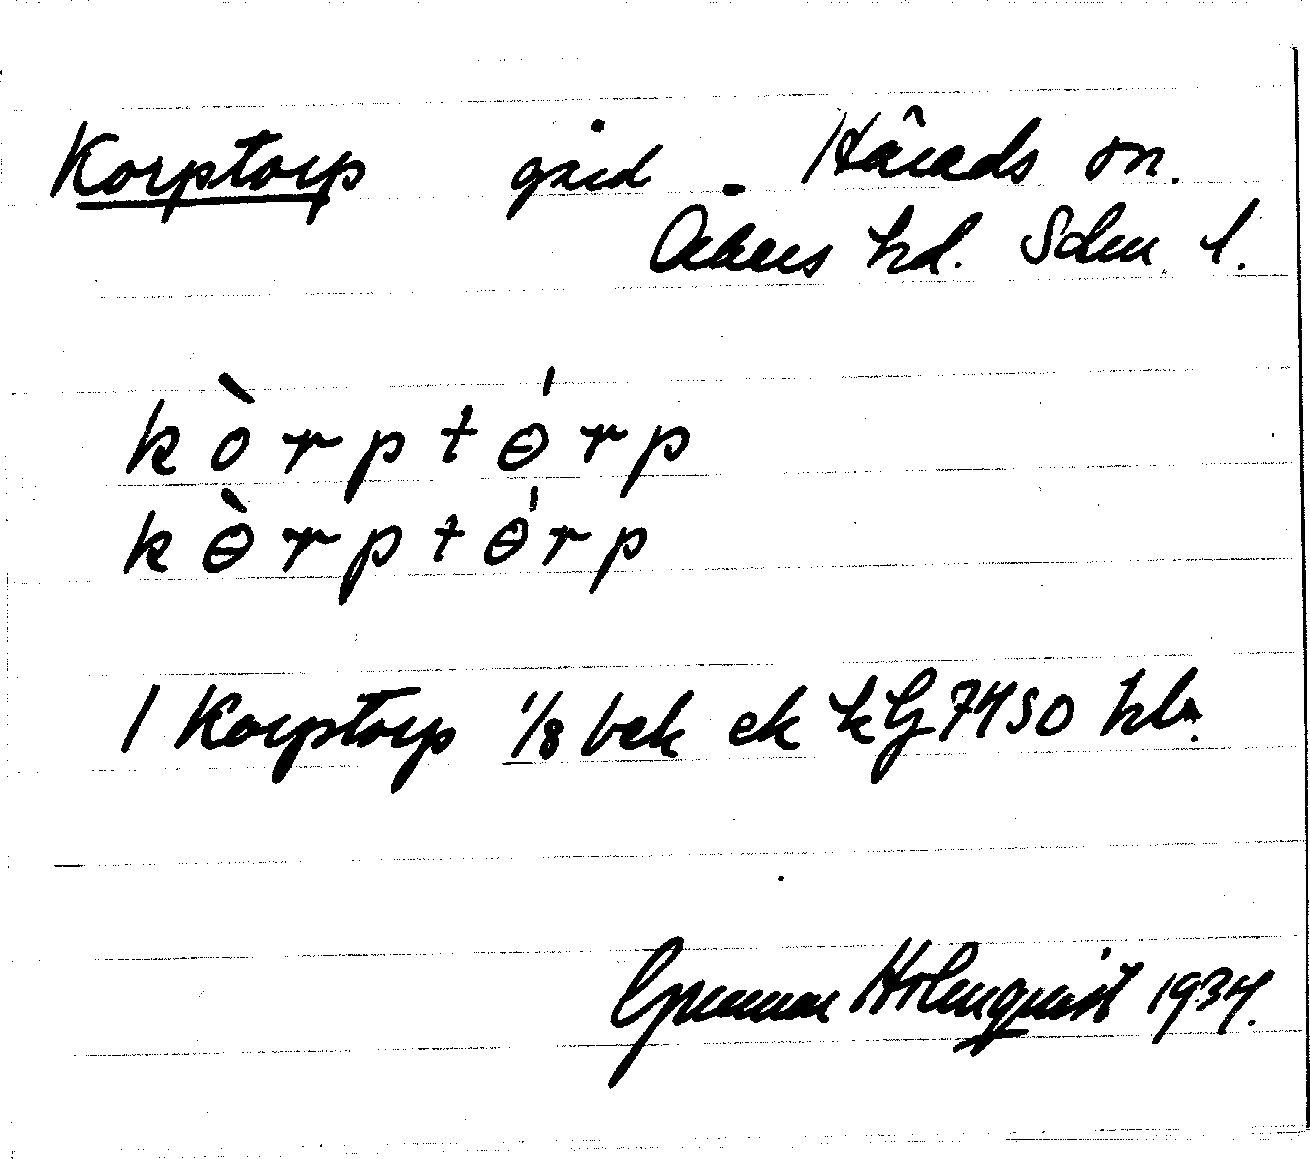 Korptorp gård. Härads sn.
Åkers hd. Sdm. l.
kòrptɵ́rp
kɵ̀rptɵ́rp
1 Korptorp 1/8 bek ek kG 7450 hla.
Gunnar Holmquist 1934.